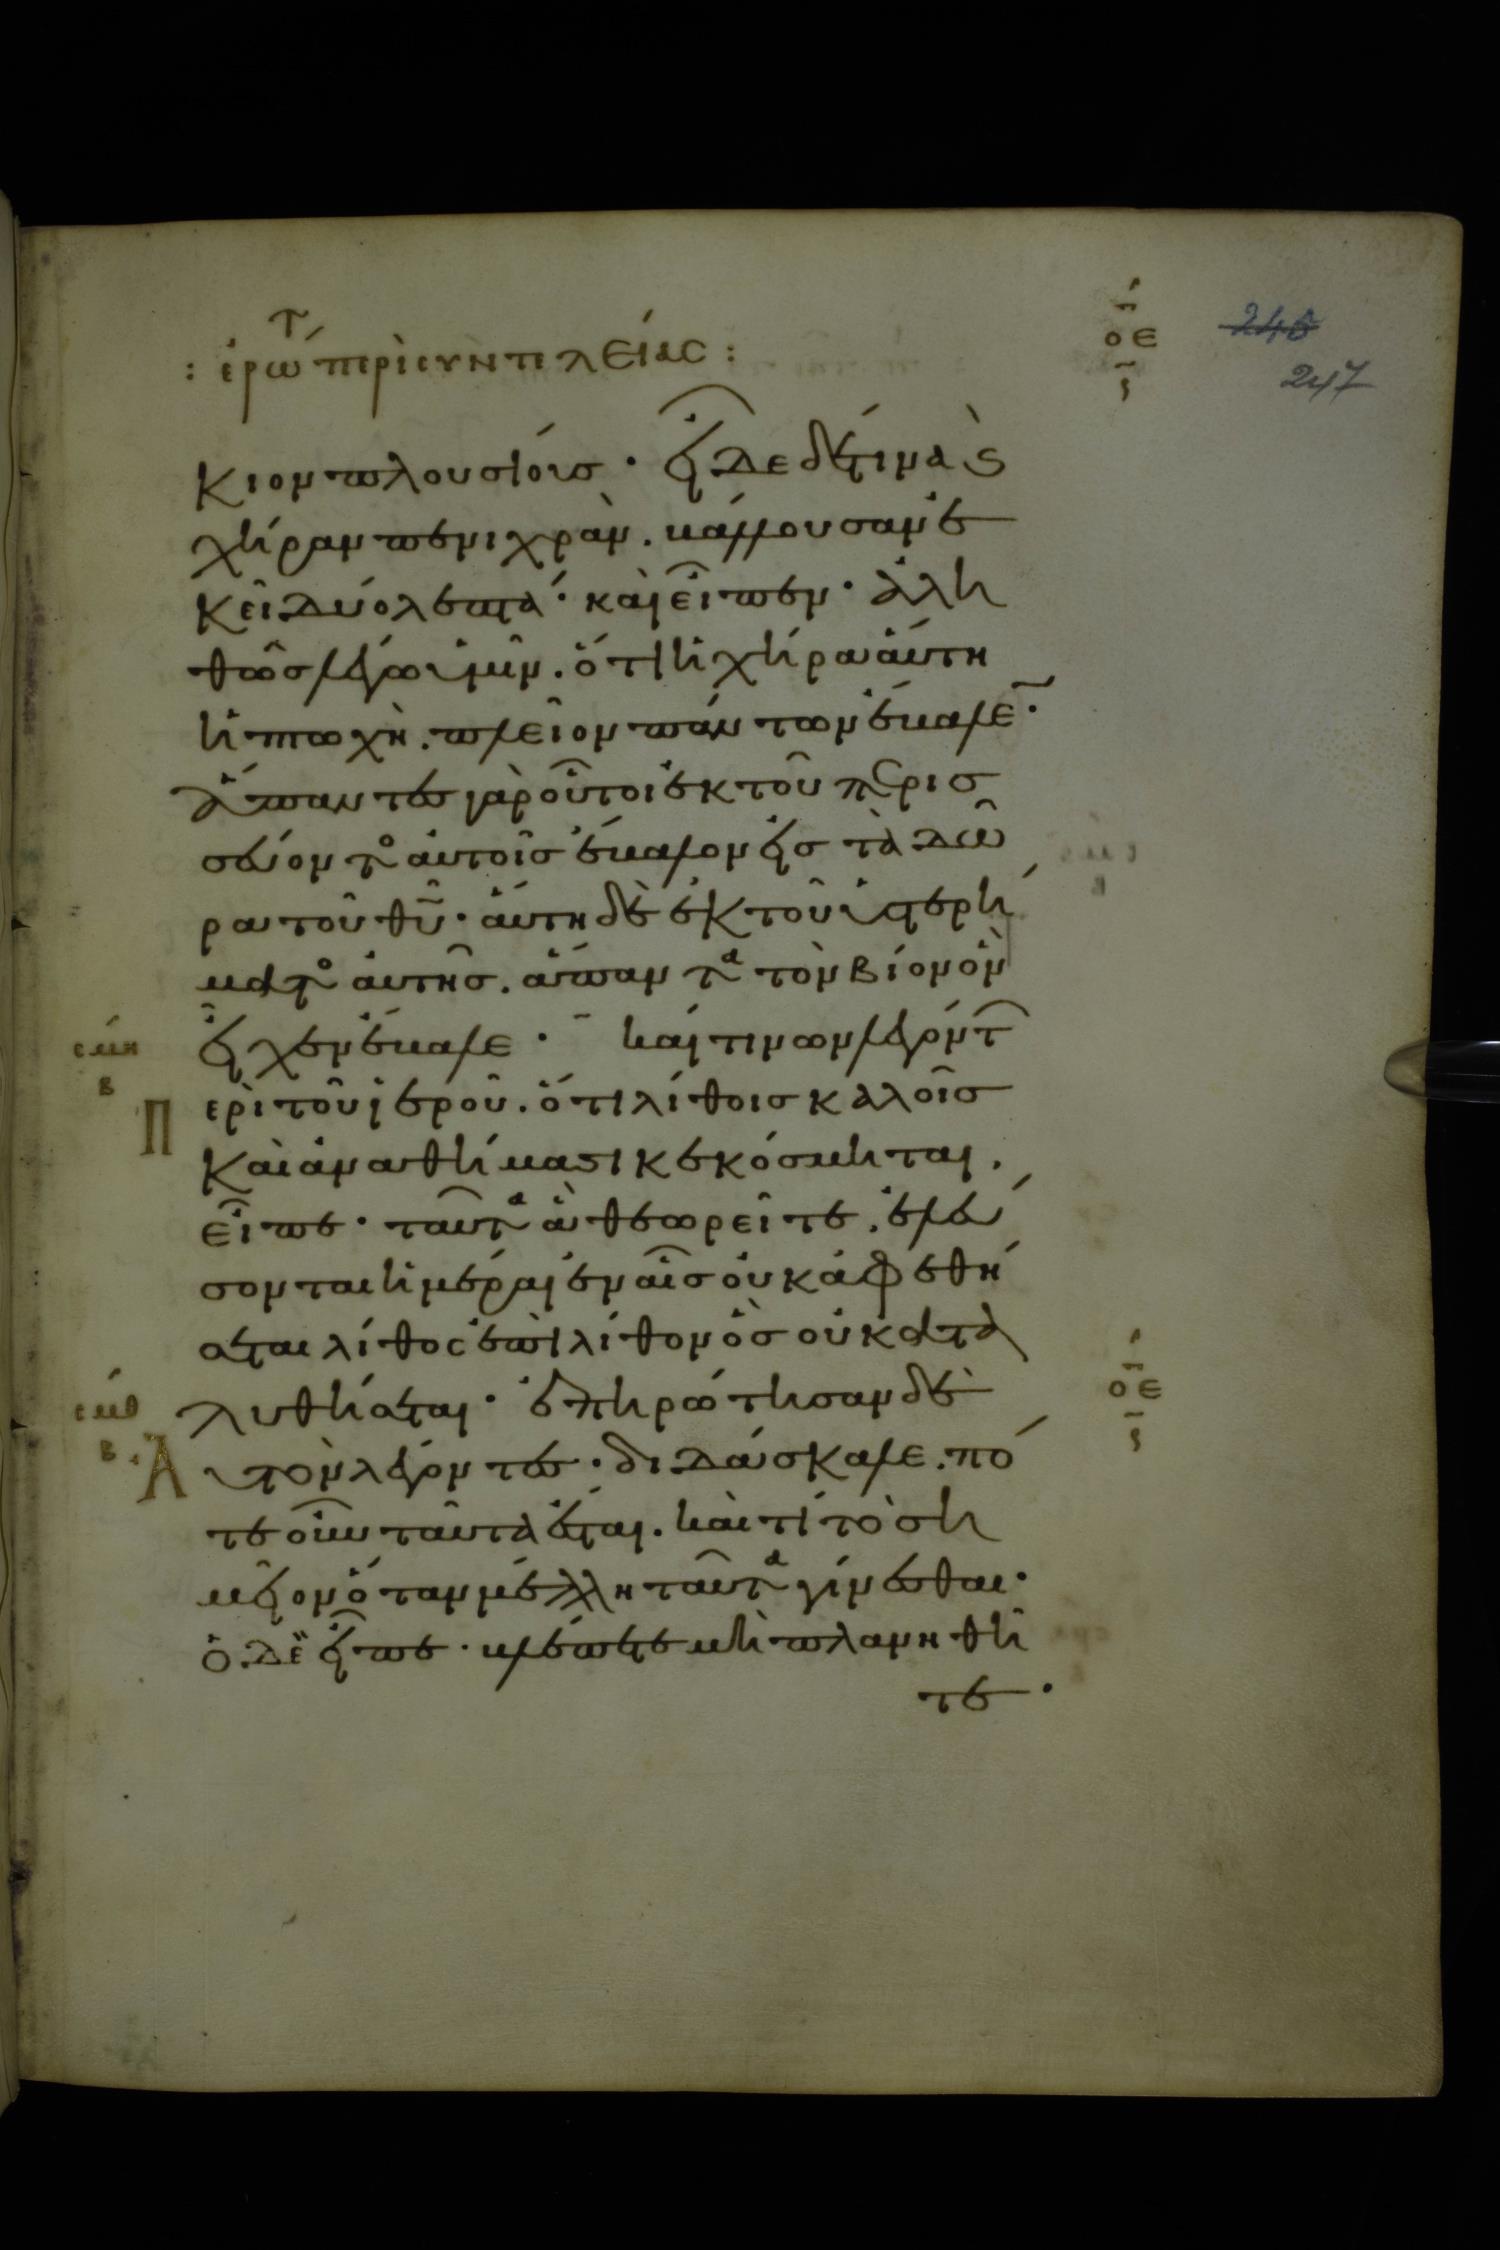 : ἐρωτ́ περὶ συντελείας :
οε
ς
246
247
κιον πλουσίους · εἶδε δέ τινα ς
χήραν πενιχρὰν . βάλλουσαν ἐ
κεῖ δύο λεπτά · καὶ εἶπεν · ἀλη
θῶς λέγω ὑμῖν . ὅτι ἡ χήρα αὕτη
ἡ πτωχὴ . πλεῖον πάντων ἔβαλε̅ ·
ἅπαντες γὰρ οὗτοι ἐκ τοῦ περισ
σεύοντο αὐτοῖς ἔβαλον εἰς τὰ δῶ
ρα τοῦ θ̅υ̅ · αὕτη δὲ ἐκ τοῦ ὑστερή
ματο αὐτῆς . ἅπαντα τὸν βίον ὃν
εἶχεν ἔβαλε · καί τινων λεγόντ
σμη
β
Περὶ τοῦ ἱεροῦ . ὅτι λίθοις καλοῖς
καὶ ἀναθήμασι κεκόσμηται .
εἶπε · ταῦτα ἃ θεωρεῖτε . ἐλεύ
σονται ἡμέραι ἐν αἷς οὐκ ἀφεθή
σεται λίθος ἐπὶ λίθον ὃς οὐ κατα
λυθήσεται · ἐπηρώτησαν δὲ
οε
ς
σμθ
β
Αὐτὸν λέγοντες · διδάσκαλε . πό
τε οὖν ταῦτα ἔσται . καὶ τί τὸ ση
μεῖον ὅταν μέλλη ταῦτα γίνεσθαι ·
ὁ δὲ εἶπε · βλέπετε μὴ πλανηθῆ
τε ·